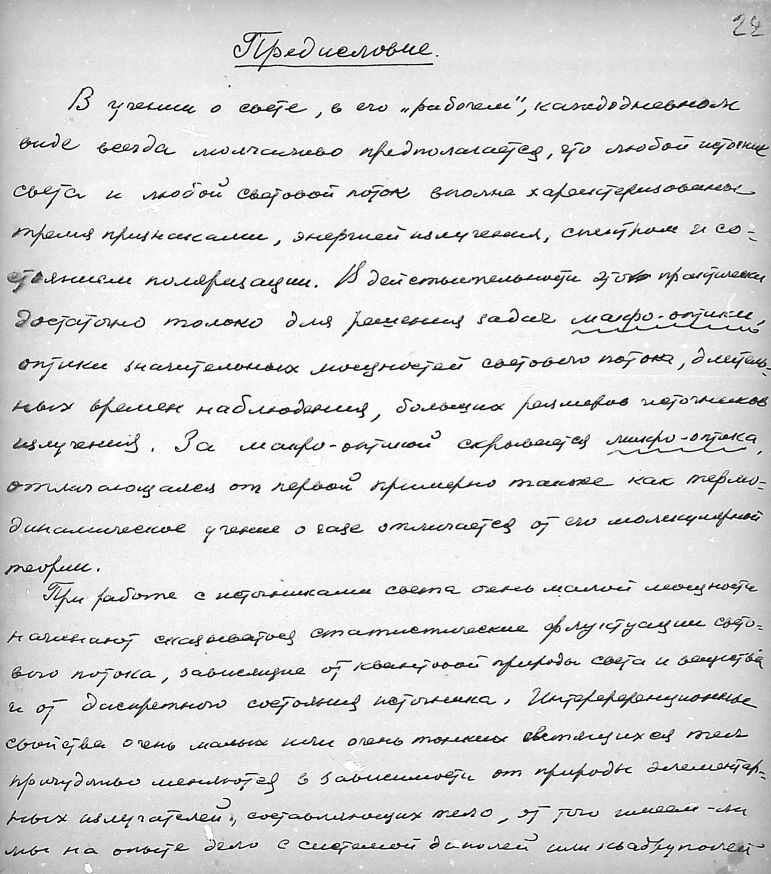 22
Предисловие.
В учении о свете, в его „рабочем“, каждодневном
виде всегда молчаливо предполагается, что любой источник
света и любой световой поток вполне характеризованы
тремя признаками, энергией излучения, спектром и со-
стоянием поляризации. В действительности этого практически
достаточно только для решения задач макро-оптики,
оптики значительных мощностей светового потока, длитель-
ных времен наблюдения, больших размеров источников
излучения. За макро-оптикой скрывается микро-оптика,
отличающаяся от первой примерно также как термо-
динамическое учение о газе отличается от его молекулярной
теории.
При работе с источниками света очень малой мощности
начинают сказываться статистические флуктуации свето-
вого потока, зависящие от квантовой природы света и вещества
и от дискретного состояния источника. Интерференционные
свойства очень малых или очень тонких светящихся тел
причудливо меняются в зависимости от природы элементар-
ных излучателей, составляющих тело, от того имеем-ли
мы на опыте дело с системой диполей или квадруполей